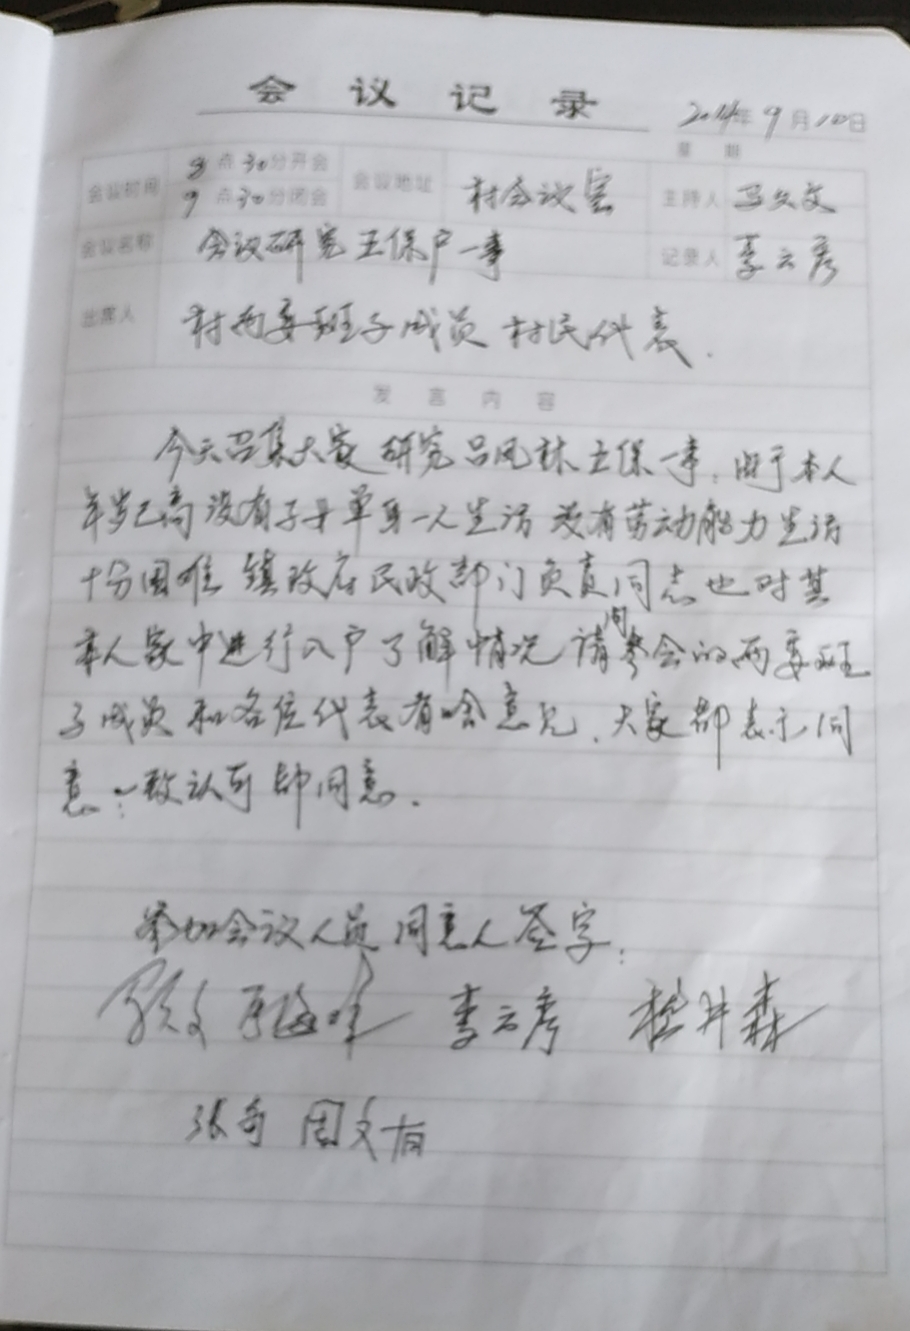 会议记录
2014年9月10日
星期
会议时间 8点30分开会 会议地址 村会议室 主持人 马久文
9点30分闭会
会议名称 会议研究五保户一事 记录人 李云彦
出席人 村两委班子成员 村民代表.
发言内容
今天召集大家研究吕凤林五保一事,由于本人
年岁已高没有子女单身一人生活没有劳动能力生活
十分困难 镇政府民政部门负责同志也对其
本人家中进行入户了解情况 请问参会的两委班
子成员和各位代表有啥意见、大家都表示同
意:一致认可都同意.
参加会议人员同意人签字:
李云彦 森
张奇 周文有